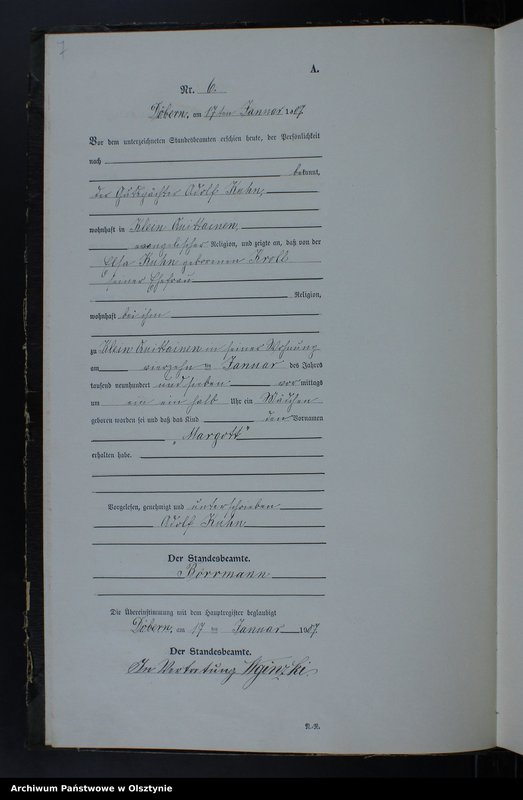 7
A.
Nr. 6.
Döbern, am 17ten Januar 1907.
Vor dem unterzeichneten Standesbeamten erschien heute, der Persönlichkeit
nach
bekannt,
der Gutspächter Adolf Kuhn,
wohnhaft in Klein Quittainen,
evangelischer Religion, und zeigte an, daß von der
Elsa Kuhn geborenen Kroll
seiner Ehefrau
Religion,
wohnhaft bei ihm
zu Klein Quittainen in seiner Wohnung
am vierzehn ten Januar des Jahres
tausend neunhundert und sieben vor mittags
um ein ein halb Uhr ein Mädchen
geboren worden sei und daß das Kind den Vornamen
„Margott“
erhalten habe.
Vorgelesen, genehmigt und unterschrieben
Adolf Kuhn
Der Standesbeamte.
Borrmann
Die Übereinstimmung mit dem Hauptregister beglaubigt
Döbern, am 17 ten Januar 1907.
Der Standesbeamte.
In Vertretung
N.-R.
Archiwum Państwowe w Olsztynie